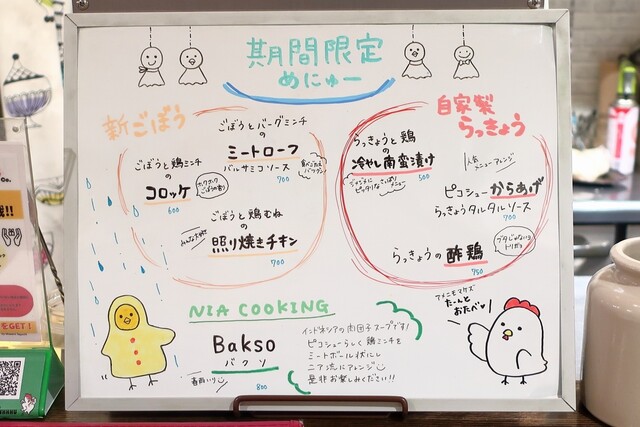 期間限定
めにゅー
新ごぼう
ごぼうとバーグミンチ
の
ミートローフ
バルサミコソース
700
食べごたえ
バツグン
ごぼうと鶏ミンチ
の
コロッケ
600
ホクホク
ごぼうの香り
ごぼうと鶏むね
の
照り焼きチキン
700
みんな大好き
自家製
らっきょう
らっきょうと鶏
の
冷やし南蛮漬け
500
ジメジメに
ピッタリなさっぱりメニュー
人気
メニューアレンジ
ピコシューからあげ
らっきょうタルタルソース
700
らっきょうの 酢鶏
750
ブタじゃないヨ
トリだヨ
NIA COOKING
Bakso
バクソ
春雨いり
800
インドネシアの肉団子スープです!
ピコシューらしく鶏ミンチを
ミートボール状にし
ニア流にアレンジ
是非お楽しみください!!
アメニモマケズ
たーんと
おたべ
をGET!